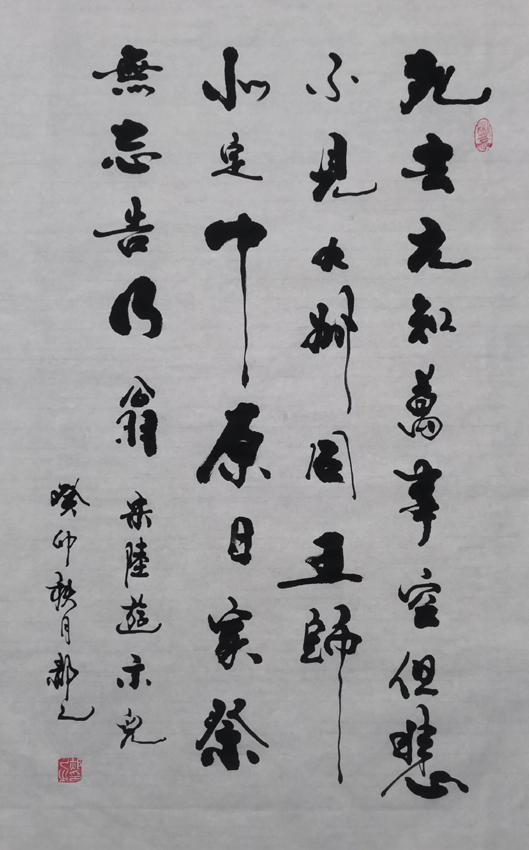 死去元知萬事空但悲
不見九州同王師
北定中原日家祭
無忘告乃翁 宋陸遊示兒
癸卯秋月